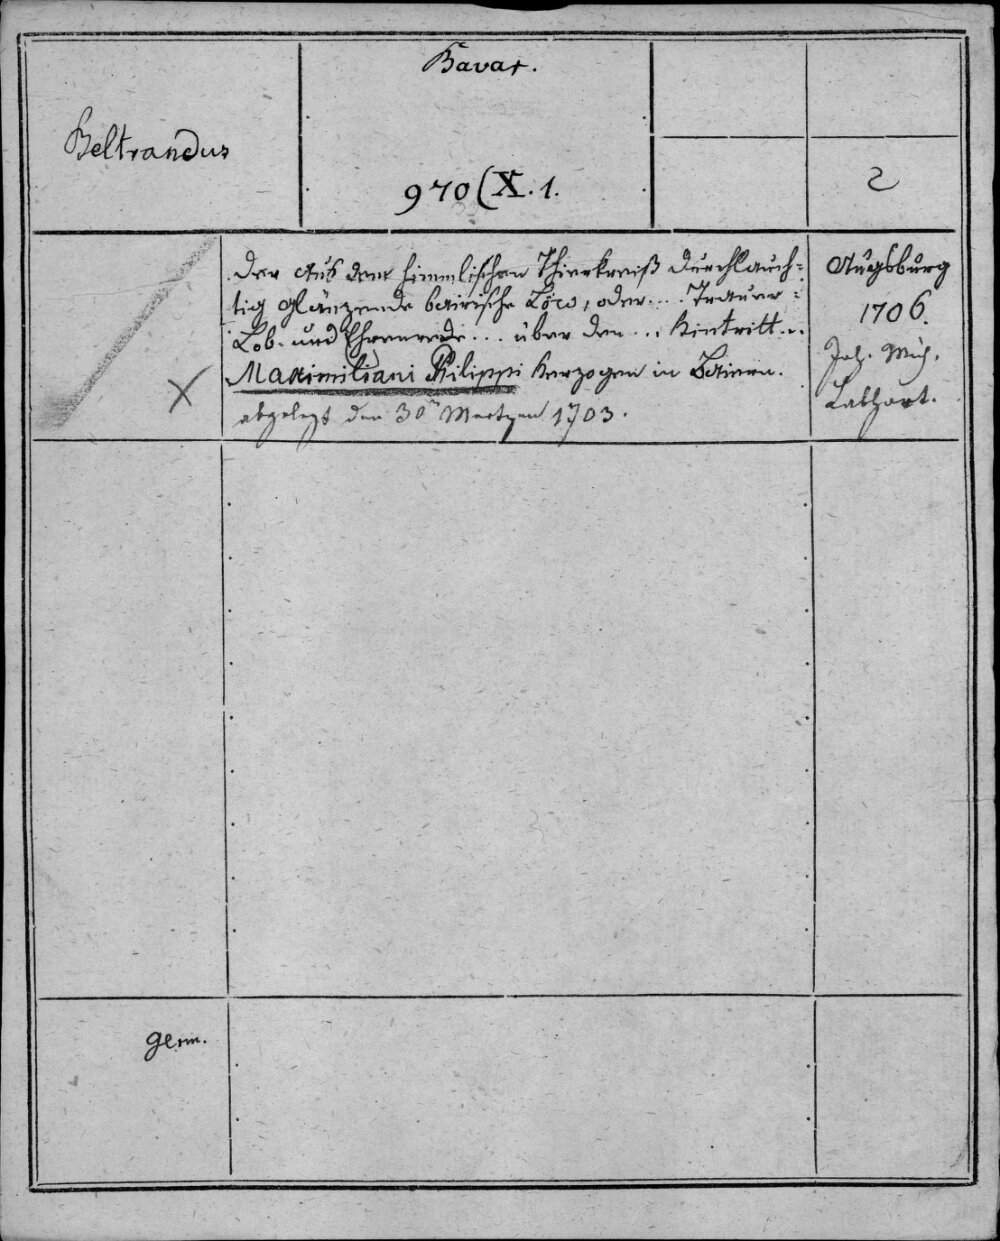 Bavar.
Beltrandus
970 (X. 1.
2
Der Aus dem himmlischen Thierkreiß Durchlauch=
tig glänzende bairische Löw, oder .... Trauer=
Lob- und Ehrenrede ... über den ... Hintritt ...
Maximiliani Philippi Herzogen in Baiern.
abgelegt den 30 Mertzen 1703.
Augsburg
1706.
Joh. Mich.
Labhart.
X
germ.